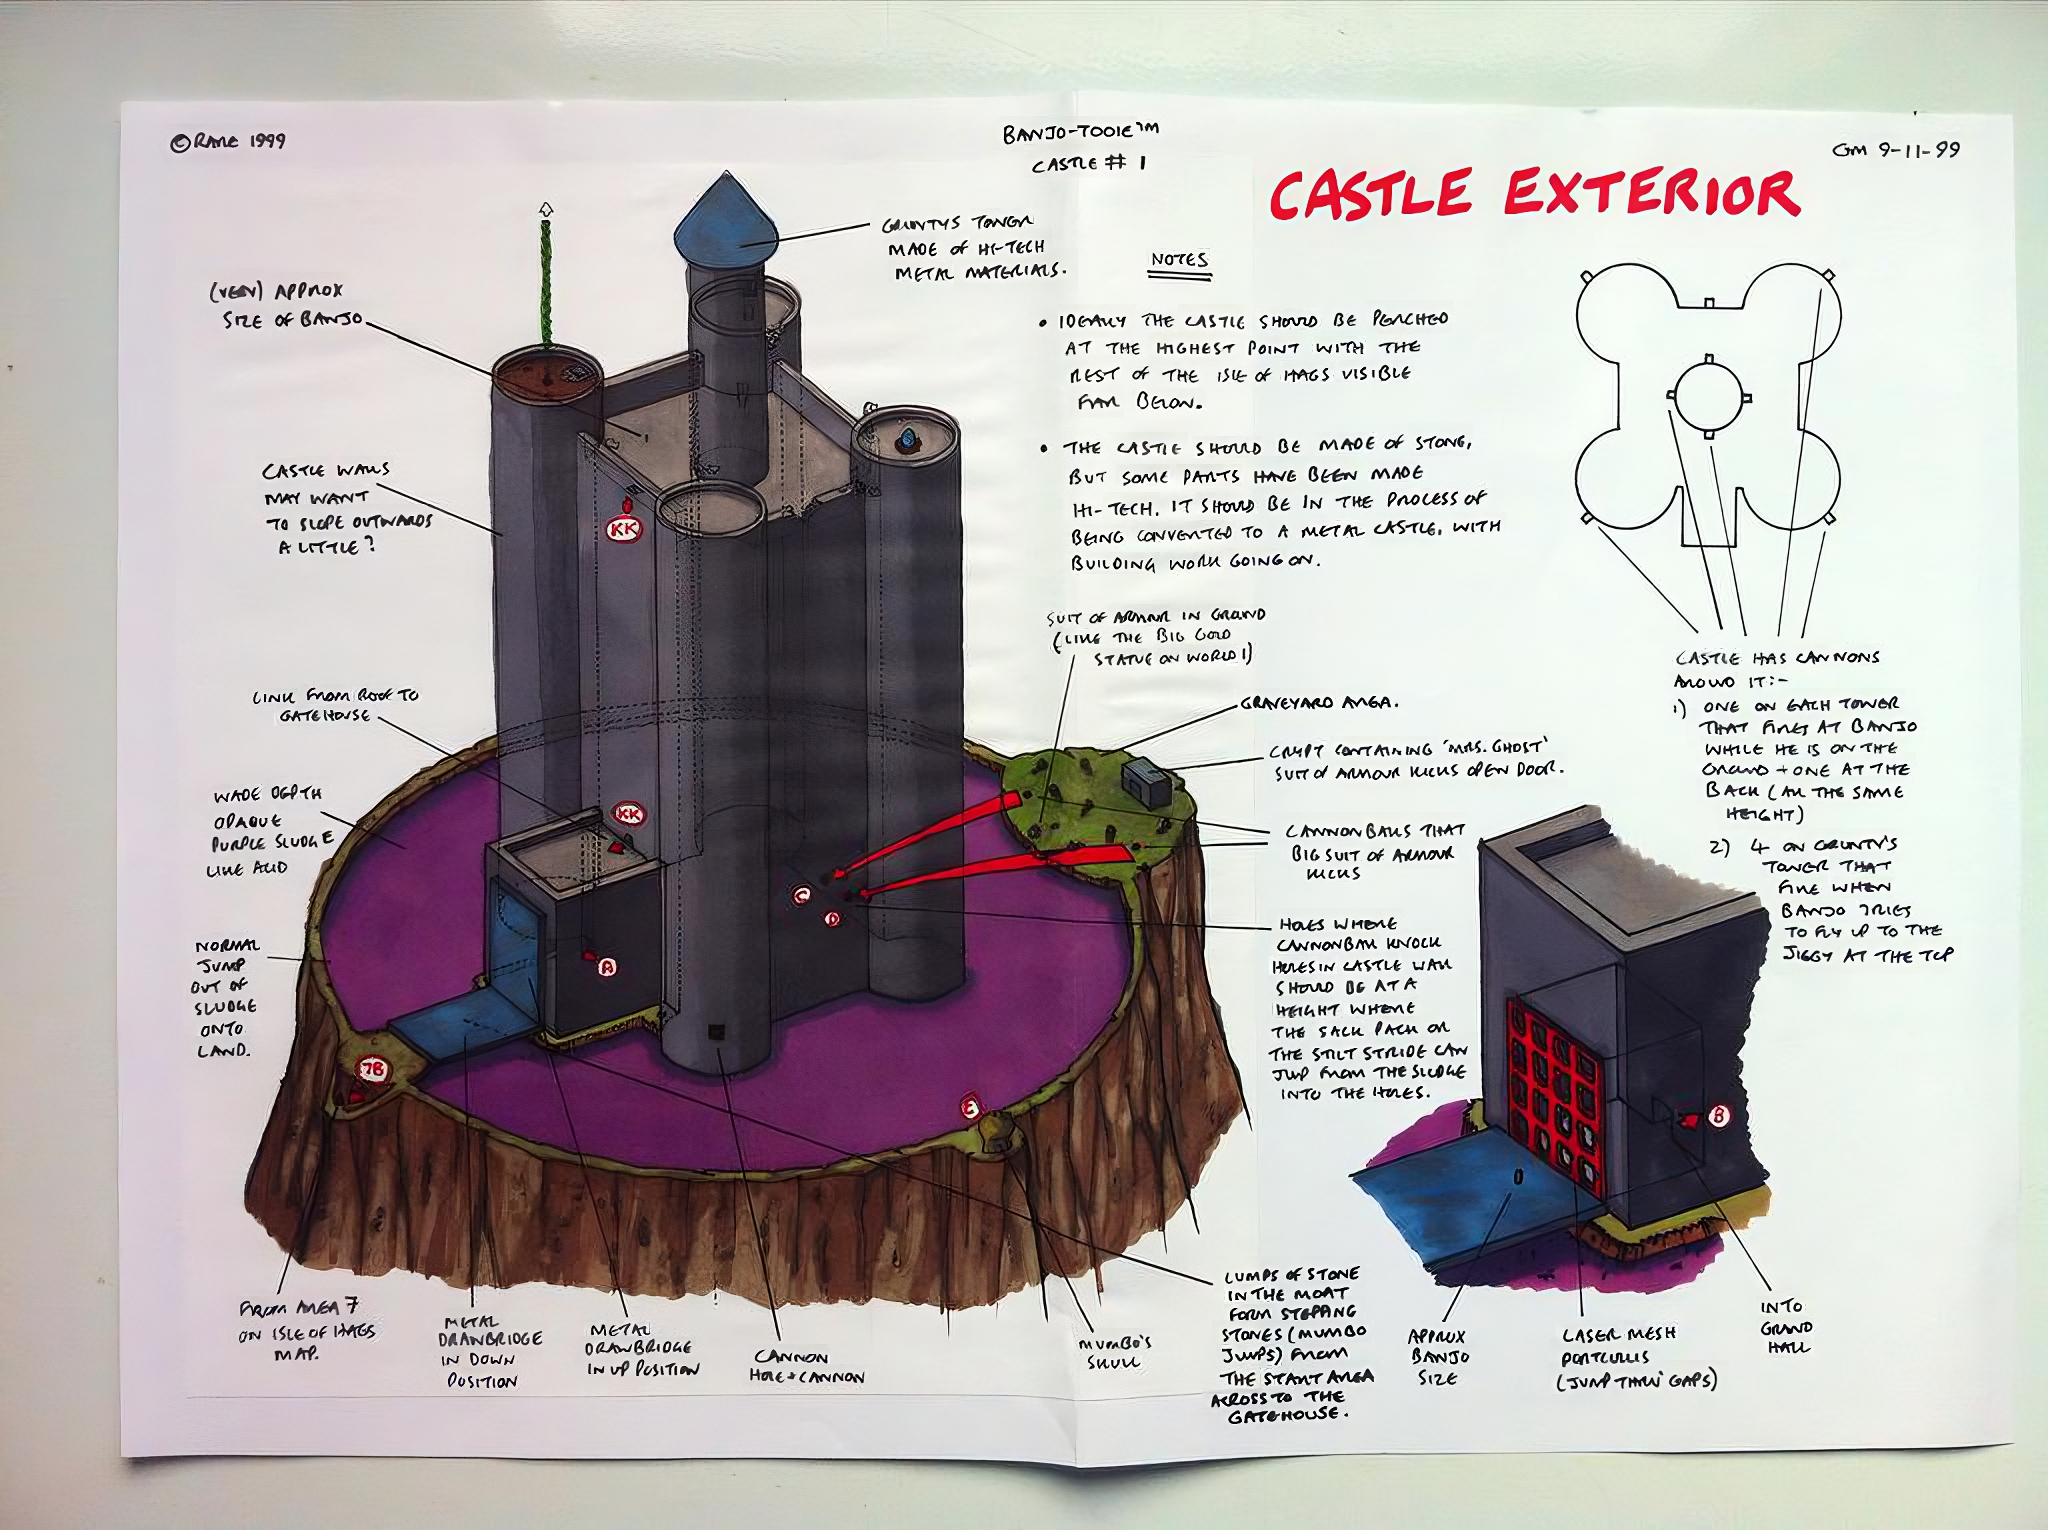 ©RARE 1999
BANJO-TOOIE™
CASTLE # 1
GM 9-11-99
CASTLE EXTERIOR
GRUNTYS TOWER
MADE OF HI-TECH
METAL MATERIALS.
(VERY) APPROX
SIZE OF BANJO
CASTLE WALLS
MAY WANT
TO SLOPE OUTWARDS
A LITTLE?
LINK FROM ROOF TO
GATEHOUSE
WADE DEPTH
OPAQUE
PURPLE SLUDGE
LIKE ACID
NORMAL
JUMP
OUT OF
SLUDGE
ONTO
LAND.
KK
KK
A
C
D
7B
E
FROM AREA 7
ON ISLE OF HAGS
MAP.
METAL
DRAWBRIDGE
IN DOWN
POSITION
METAL
DRAWBRIDGE
IN UP POSITION
CANNON
HOLE + CANNON
MUMBO'S
SKULL
NOTES
• IDEALLY THE CASTLE SHOULD BE PERCHED
AT THE HIGHEST POINT WITH THE
REST OF THE ISLE OF HAGS VISIBLE
FAR BELOW.
• THE CASTLE SHOULD BE MADE OF STONE,
BUT SOME PARTS HAVE BEEN MADE
HI-TECH. IT SHOULD BE IN THE PROCESS OF
BEING CONVERTED TO A METAL CASTLE, WITH
BUILDING WORK GOING ON.
SUIT OF ARMOUR IN GROUND
(LIKE THE BIG GOLD
STATUE ON WORLD 1)
GRAVEYARD AREA.
CRYPT CONTAINING 'MRS. GHOST'
SUIT OF ARMOUR KICKS OPEN DOOR.
CANNONBALLS THAT
BIG SUIT OF ARMOUR
KICKS
HOLES WHERE
CANNONBALL KNOCK
HOLES IN CASTLE WALL
SHOULD BE AT A
HEIGHT WHERE
THE SACK PACK OR
THE STILT STRIDE CAN
JUMP FROM THE SLUDGE
INTO THE HOLES.
LUMPS OF STONE
IN THE MOAT
FORM STEPPING
STONES (MUMBO
JUMPS) FROM
THE START AREA
ACROSS TO THE
GATEHOUSE.
CASTLE HAS CANNONS
AROUND IT:-
1) ONE ON EACH TOWER
THAT FIRES AT BANJO
WHILE HE IS ON THE
GROUND + ONE AT THE
BACK (ALL THE SAME
HEIGHT)
2) 4 ON GRUNTY'S
TOWER THAT
FIRE WHEN
BANJO TRIES
TO FLY UP TO THE
JIGGY AT THE TOP
B
APPROX
BANJO
SIZE
LASER MESH
PORTCULLIS
(JUMP THRU' GAPS)
INTO
GRAND
HALL